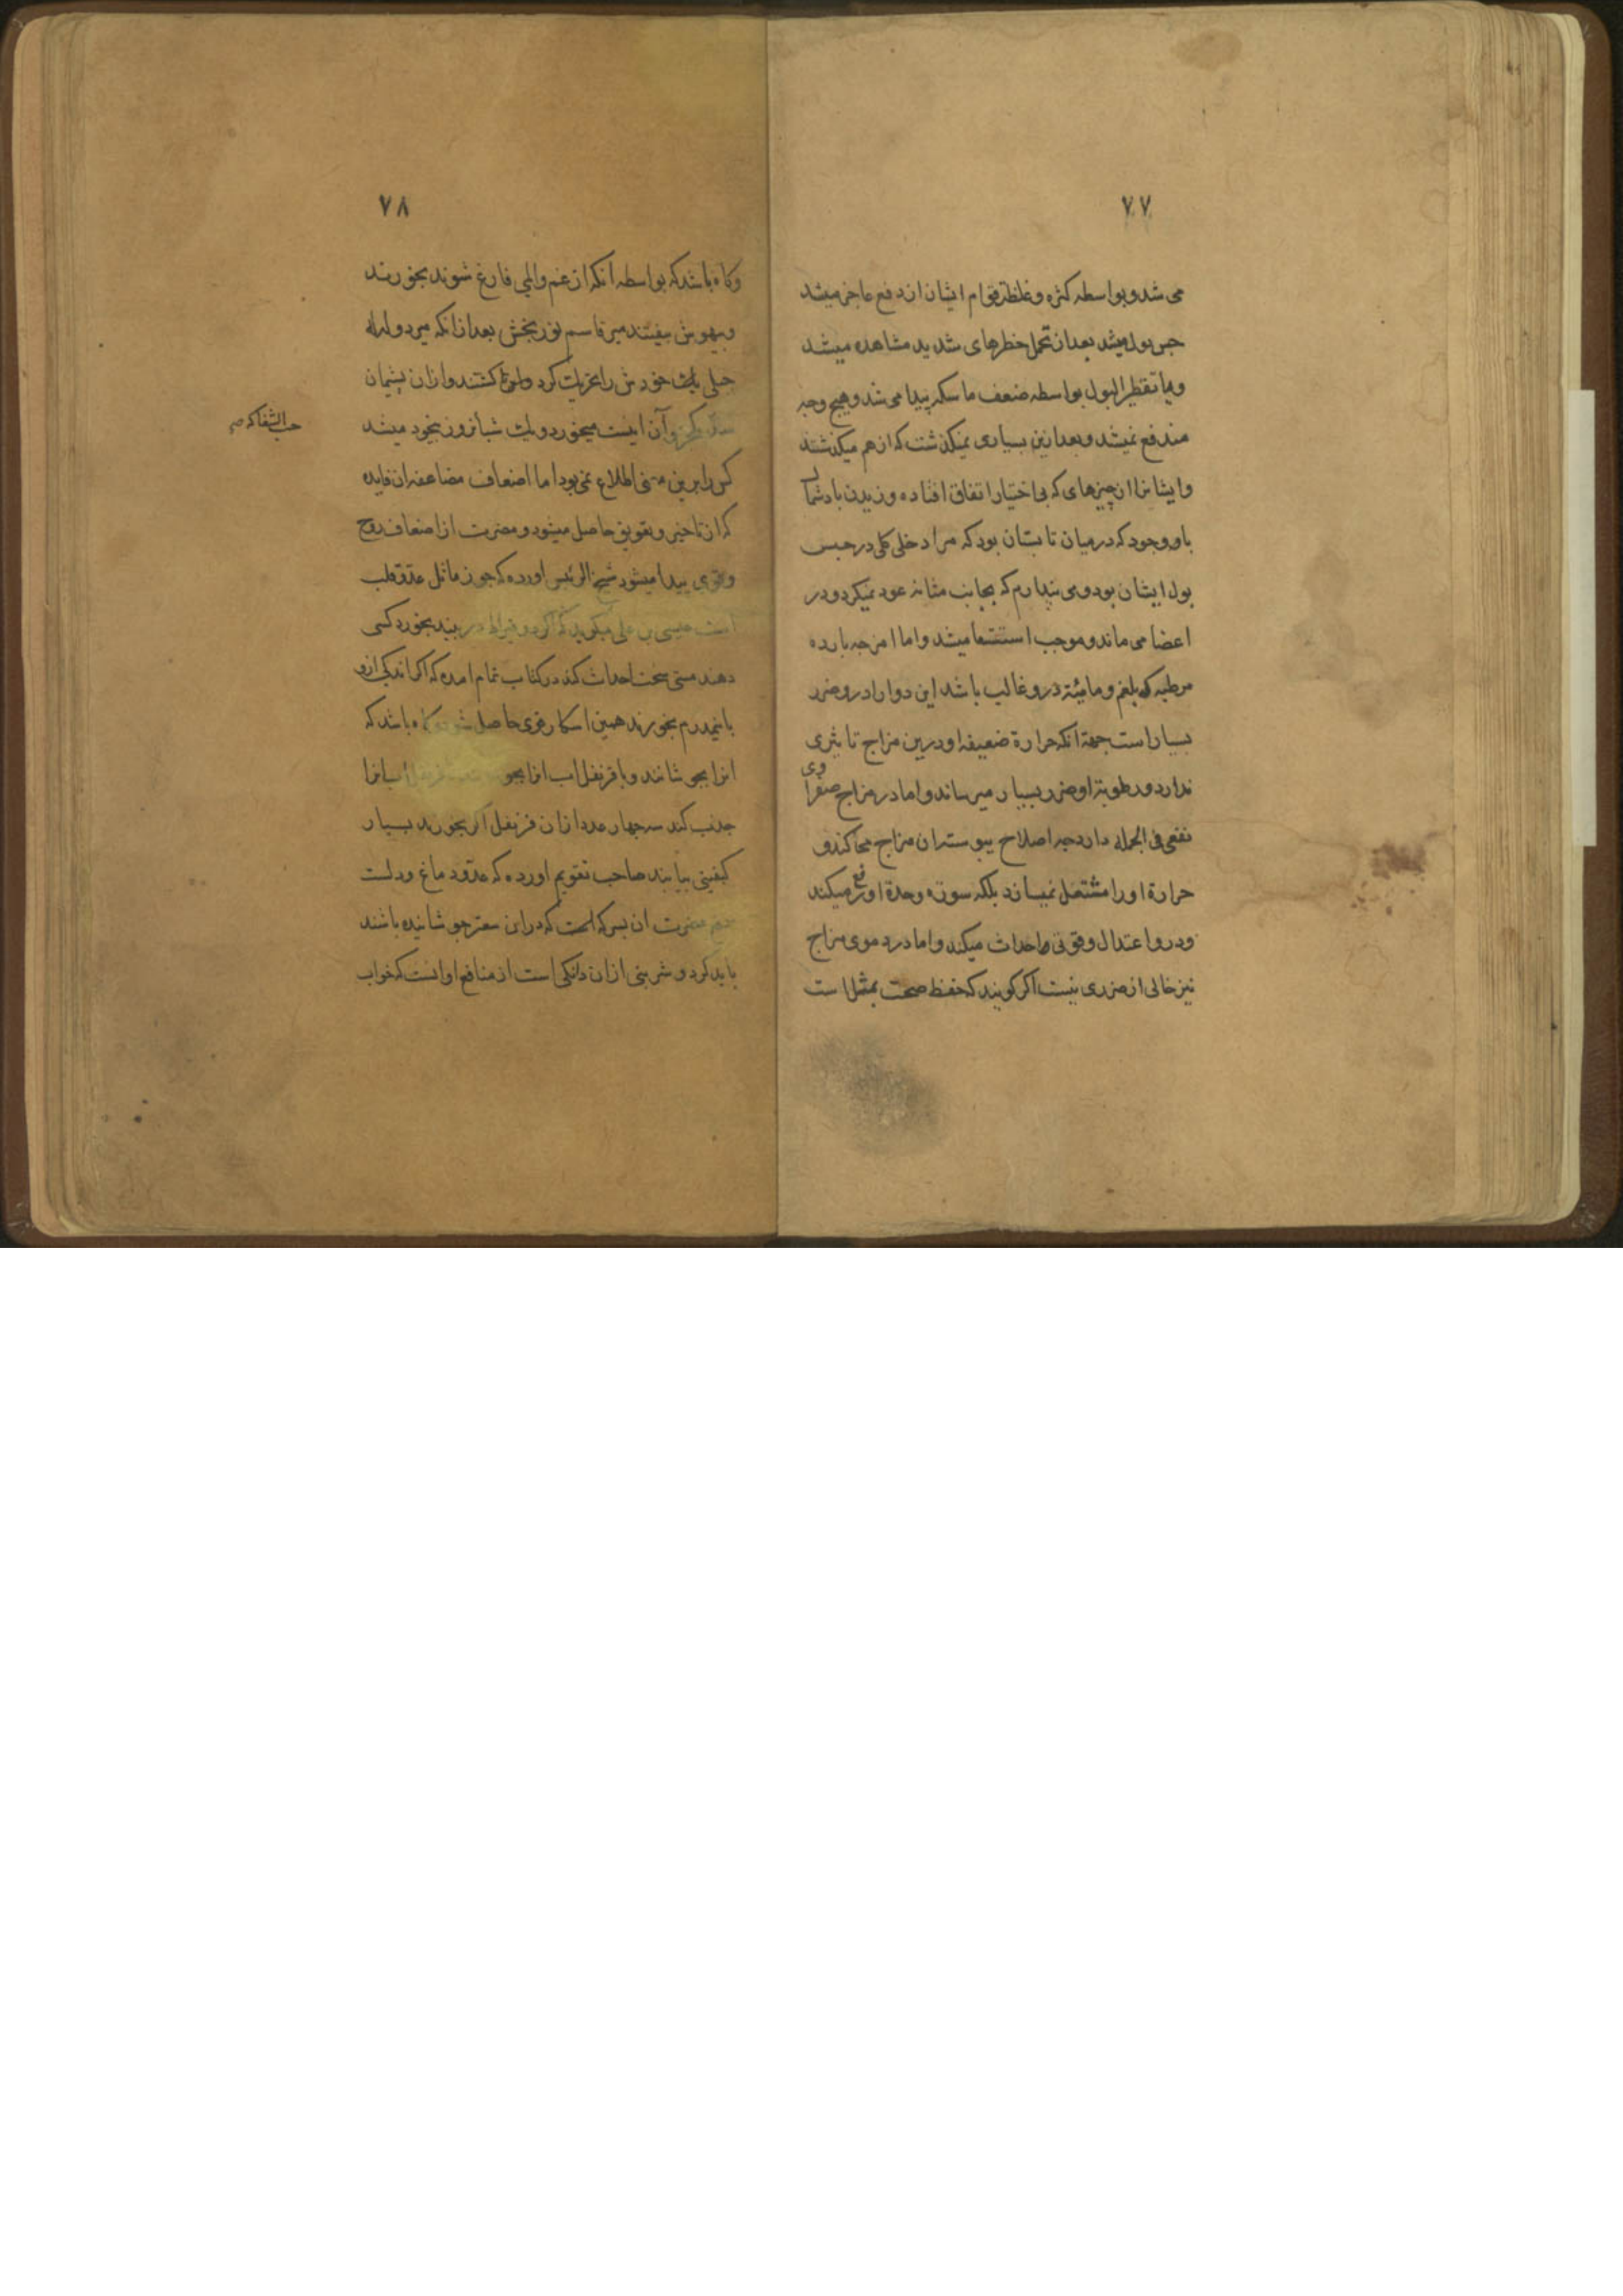 ۷۷
می شد و بواسطه کثرة و غلظة قوام ایشان از دفع عاجز میشد
حبس بول میشد بعد از تحمل خطرهای شدید مشاهده میشد
و یا تقطیر البول بواسطه ضعف ماسکه پیدا می شد و هیچ وجه
مندفع نمیشد و بعد ازین بسیاری نمیکذشت که از هم میکذشتند
وایشانرا از چیزهای که بی اختیار اتفاق افتاده وزیدن باد شمال
باوجود که در میان تابستان بود که مرا دخلی کلی در حبس
بول ایشان بود و می پندارم که بجانب مثانه عود نمیکرد و در
اعضا می ماند و موجب استسقا میشد و اما امزجه بارده
مرطبه که بلغم و مائیة درو غالب باشد این دوا را درو ضرر
بسیار است جهة انکه حرارة ضعیفه او درین مزاج تاثیری
ندارد و رطوبة او ضرر بسیار میرساند و اما در مزاج صفراوی
نفعی فی الجمله دارد چه اصلاح یبوسة ان مزاج می کند و
حرارة او را مشتعل نمیسازد بلکه سورة وحدة او رفع میکند
و درو اعتدال وقوتی احداث میکند و اما در دموی مزاج
نیز خالی از ضرری نیست اکر کویند که حفظ صحت بمثل است
۷۸
وکاه باشد که بواسطه آنکه از غم والمی فارغ شوند بخورند
وبیهوش بیفتند میر قاسم نوربخش بعد از انکه میر دولد
جبلی خودش را کرد کشتند وازان پشیمان
وآن اینست میخورد و یک شبانروز بیخود میشد
کس را برین معنی اطلاع نمی بود اما اضعاف مضاعف ان فایده
که از تاخیر و تعویق حاصل میشود ومضرت از اضعاف روح
وقوی پیدا میشود شیخ الرئیس اورده که جوز ماثل عدو قلب
است عیسی بن علی میکوید که اکر دو قیراط در بخورد کسی
دهند مستی سخت احداث کند در کتاب تمام امده که اکر اندکی ازو
یا نیمدرم بخورند همین اسکار قوی حاصل شود کاه باشد که
انرا بجوشانند ویا قرنفل اب انرا
جذب کند سه چهار عدد ازان قرنفل اکر بخورند بسیار
کیفیتی بیابند صاحب تقویم اورده که عدو دماغ ودلست
مضرت ان بسرکه است که دران سعتر جوشانیده باشند
باید کرد و شربتی ازان دانکی است از منافع او انست که خواب
حب الشفا که